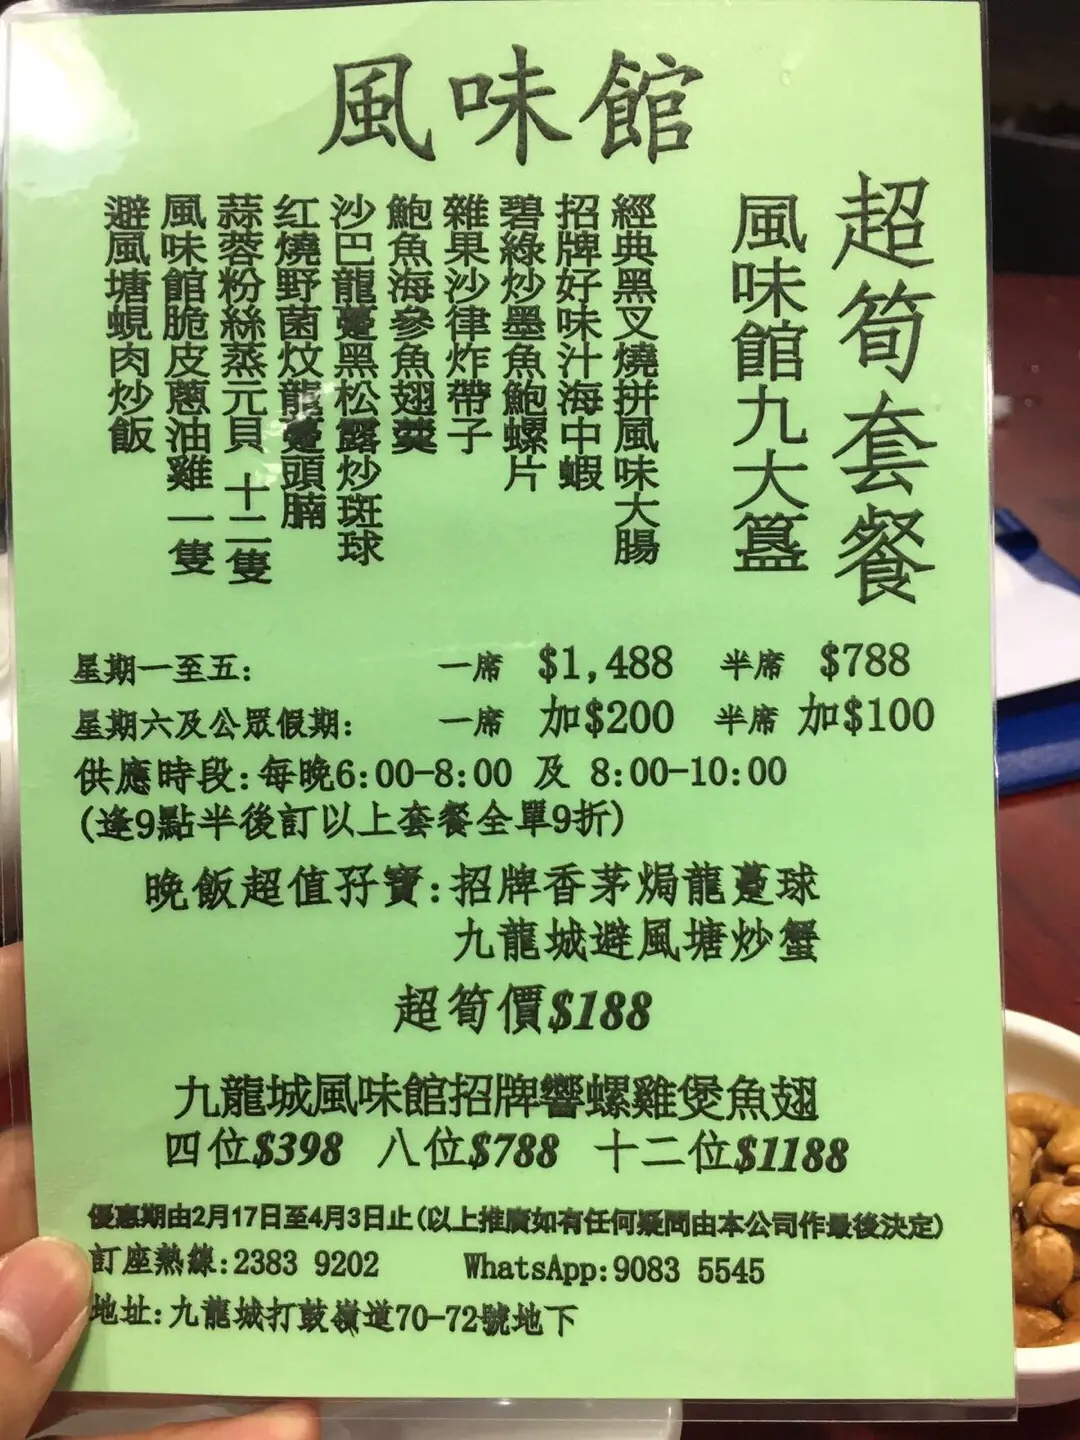 風味館
超筍套餐
風味館九大簋
經典黑叉燒拼風味大腸
招牌好味汁海中蝦
碧綠炒墨魚鮑螺片
雜果沙律炸帶子
鮑魚海參魚翅羹
沙巴龍躉黑松露炒斑球
红燒野菌炆龍躉頭腩
蒜蓉粉絲蒸元貝 十二隻
風味館脆皮蔥油雞一隻
避風塘蜆肉炒飯
星期一至五: 一席 $1,488 半席 $788
星期六及公眾假期: 一席 加$200 半席 加$100
供應時段:每晚6:00-8:00 及 8:00-10:00
(逢9點半後訂以上套餐全單9折)
晚飯超值孖寶:招牌香茅焗龍躉球
九龍城避風塘炒蟹
超筍價$188
九龍城風味館招牌響螺雞煲魚翅
四位$398 八位$788 十二位$1188
優惠期由2月17日至4月3日止(以上推廣如有任何疑問由本公司作最後決定)
訂座熱線:2383 9202 WhatsApp:9083 5545
地址:九龍城打鼓嶺道70-72號地下